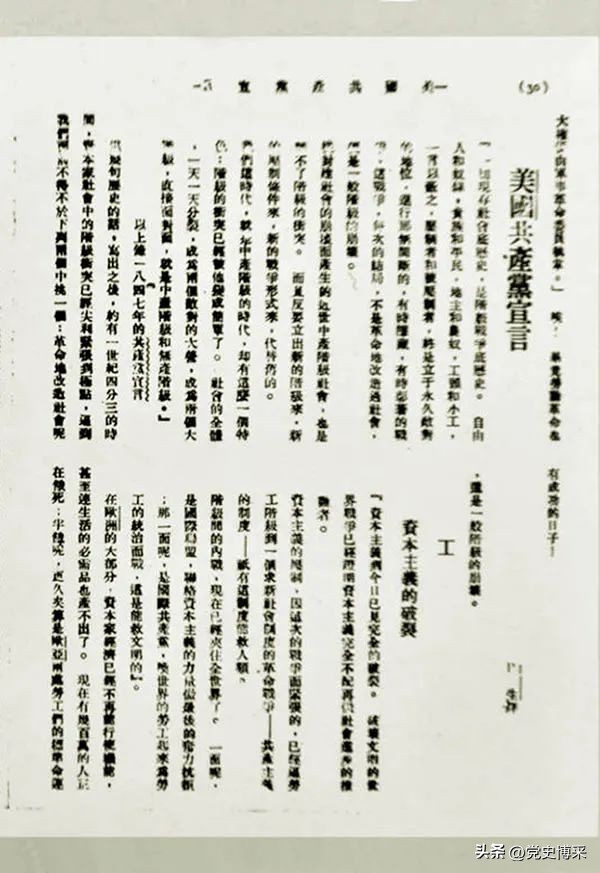 (30)
美國共產黨宣
由軍事革命委員執掌。』 唉！ 畢竟勞動革命也
有成功的日子！
美國共產黨宣言
現存社會底歷史，是階級戰爭底歷史。 自由
人和奴隸，貴族和平民，地主和農奴，工頭和小工，
一言以蔽之，壓制者和被壓制者，終是立于永久敵對
的地位，進行那無間斷的，有時隱藏，有時彰著的戰
，這戰爭，每次的結局，不是革命地改造過社會，
便是一般階級的崩壞。
封建社會的崩壞而產生的近世中產階級社會，也是
不了階級的衝突。 而且反要立出新的階級來，新
的壓制條件來，新的戰爭形式來，代替舊的。
我們這時代，就是中產階級的時代，却有這麼一個特
色：階級的衝突已經被他變成簡單了。 社會的全體
，一天一天分裂，成為兩個敵對的大營，成為兩個大
階級，直接面對面，就是中產階級和無產階級。』
以上錄一八四七年的共產黨宣言
這幾句歷史的話，寫出之後，約有一世紀四分三的時
間，資本家社會中的階級衝突已經尖利緊張到極點，逼到
我們不得不於下列兩個中挑一個：革命地改造社會呢
，還是一般階級的崩壞。
工
資本主義的破裂
『資本主義到今日已見完全的破裂。 破壞文明的世
界戰爭已經證明資本主義完全不配再做社會進步的
者。
資本主義的壓制，因這次的戰爭而緊張的，已經逼勞
工階級到一個求新社會制度的革命戰爭——共產主義
的制度——祇有這制度能救人類。
階級間的內戰，現在已經夾住全世界了。 一面呢，
是國際聯盟，聯絡資本主義的力量做最後的奮力抗
；那一面呢，是國際共產黨，喚世界的勞工起來為勞
工的統治而戰，這是能救文明的』。
在歐洲的大部分，資本家經濟已經不再能行使機能，
甚至連生活的必需品也產不出了。 現在有幾百萬的人正
在餓死；半餓呢，更久矣算是歐亞兩處勞工們的標準命運
头条 @党史博采